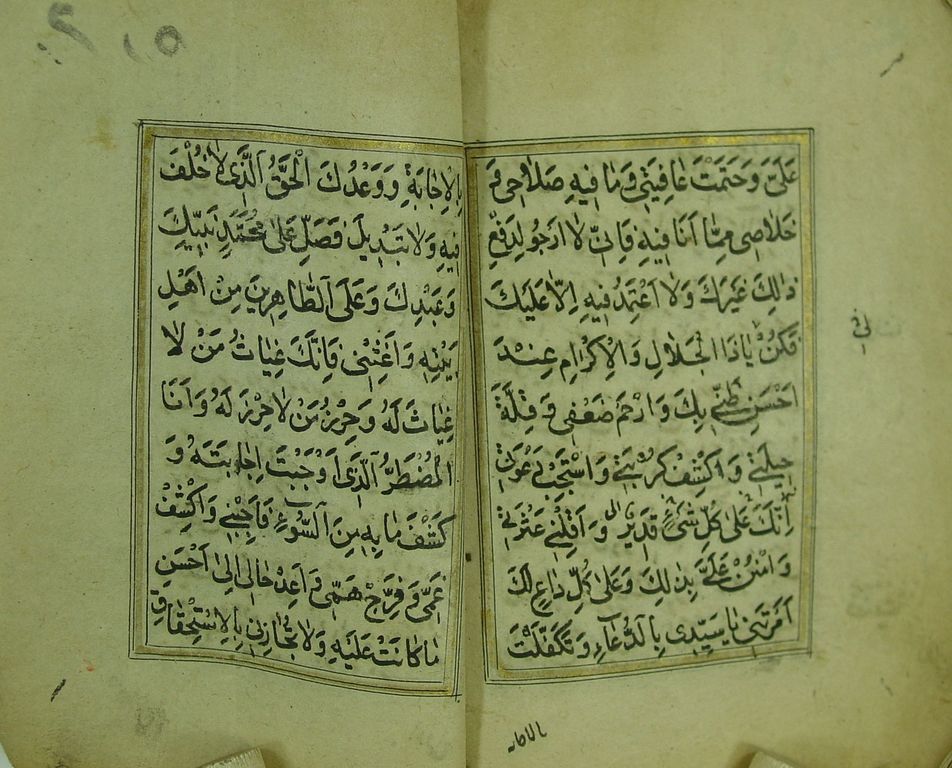 عَلَىَّ وَخَتَمْتَ عَافِيَتِى وَمَا فِيهِ صَلَاحِى وَ
خَلَاصِى مِمَّا اَنَا فِيهِ فَاِنِّى لَا اَرْجُو لِدَفْعِ
ذٰلِكَ غَيْرَكَ وَلَا اَعْتَمِدُ فِيهِ اِلَّا عَلَيْكَ
فَكُنْ يَاذَا الْجَلَالِ وَالْاِكْرَامِ عِنْدَ
اَحْسَنِ ظَنِّى بِكَ وَارْحَمْ ضَعْفِى وَ قِلَّةَ
حِيلَتِى وَ اكْشِفْ كُرْبَتِى وَاسْتَجِبْ دَعْوَتِى
اِنَّكَ عَلٰى كُلِّ شَىْءٍ قَدِيرٌ وَ اَقِلْنِى عَثْرَتِى
وَ امْنُنْ عَلَىَّ بِذٰلِكَ وَعَلٰى كُلِّ دَاعٍ لَكَ
اَمَرْتَنِى يَا سَيِّدِى بِالدُّعَاءِ وَتَكَفَّلْتَ
بالاجا
بِالْاِجَابَةِ وَ وَعْدُكَ الْحَقُّ الَّذِى لَا خُلْفَ
فِيهِ وَلَا تَبْدِيلَ فَصَلِّ عَلٰى مُحَمَّدٍ نَبِيِّكَ
وَعَبْدِكَ وَعَلَى الطَّاهِرِينَ مِنْ اَهْلِ
بَيْتِهِ وَاَغِثْنِى فَاِنَّكَ غِيَاثُ مَنْ لَا
غِيَاثَ لَهُ وَحِرْزُ مَنْ لَا حِرْزَ لَهُ وَاَنَا
الْمُضْطَرُّ الَّذِى اَوْجَبْتَ اِجَابَتَهُ وَ
كَشْفَ مَا بِهِ مِنَ السُّوءِ فَاَجِبْنِى وَاكْشِفْ
غَمِّى وَ فَرِّجْ هَمِّى وَ اَعِدْ حَالِى اِلٰى اَحْسَنِ
مَا كَانَتْ عَلَيْهِ وَلَا تُجَازِنِى بِالْاِسْتِحْقَاقِ